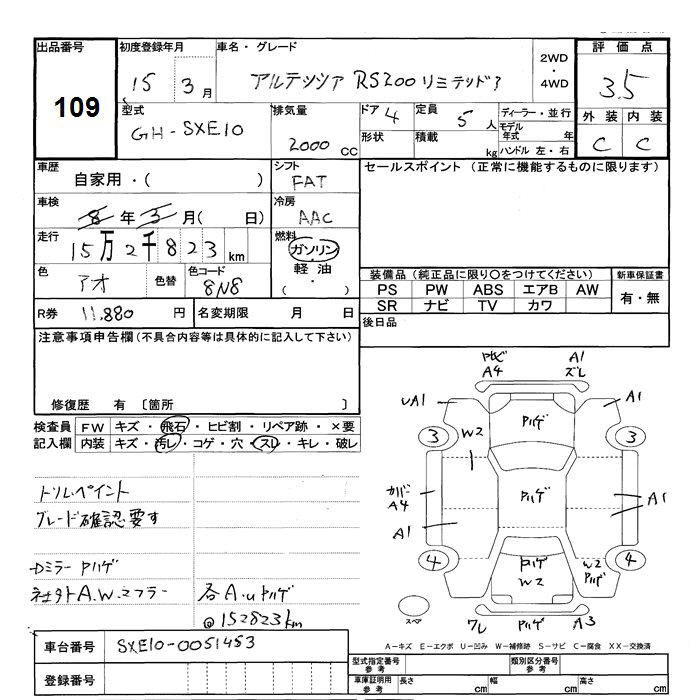 出品番号 初度登録年月 車名・グレード 評価点
109 15 3月 アルテッツァ RS200 リミテッド 2WD・4WD 3.5
型式 排気量 ドア 4 定員 5人 ディーラー・並行 外装 内装
GH-SXE10 2000cc 形状 積載 kg モデル年式 年 C C
ハンドル 左・右
車歴 シフト セールスポイント (正常に機能するものに限ります)
自家用・( ) FAT
車検 冷房
8年3月( 日) AAC
走行 燃料
15万2千823km ガソリン
色 色替 色コード 軽油
アオ 8N8 ・( )
装備品 (純正品に限り○をつけてください) 新車保証書
PS PW ABS エアB AW 有・無
SR ナビ TV カワ
R券 11,880円 名変期限 月 日 後日品
注意事項申告欄(不具合内容等は具体的に記入して下さい)
修復歴 有 〔箇所 〕
検査員 FW キズ・飛石・ヒビ割・リペア跡・×要
記入欄 内装 キズ・汚レ・コゲ・穴・スレ・キレ・破レ
トソルペイント
グレード確認要す
Dミラー ヤハゲ
社外A.W.マフラー 各A.u ヤハゲ
@152823km
ヤセビ A4 A1 ズレ
uA1 A1
3 W2 ヤハゲ 3
カバー A4 ヤハゲ A1
A1
4 ヤハゲ W2 W2 ヤハゲ 4
スペア ワレ ヤハゲ A3
A-キズ E-エクボ U-凹み W-補修跡 S-サビ C-腐食 XX-交換済
車台番号 SXE10-0051453
登録番号
型式指定番号 参考 類別区分番号 参考
車庫証明用 参考 長さ cm 幅 cm 高さ cm